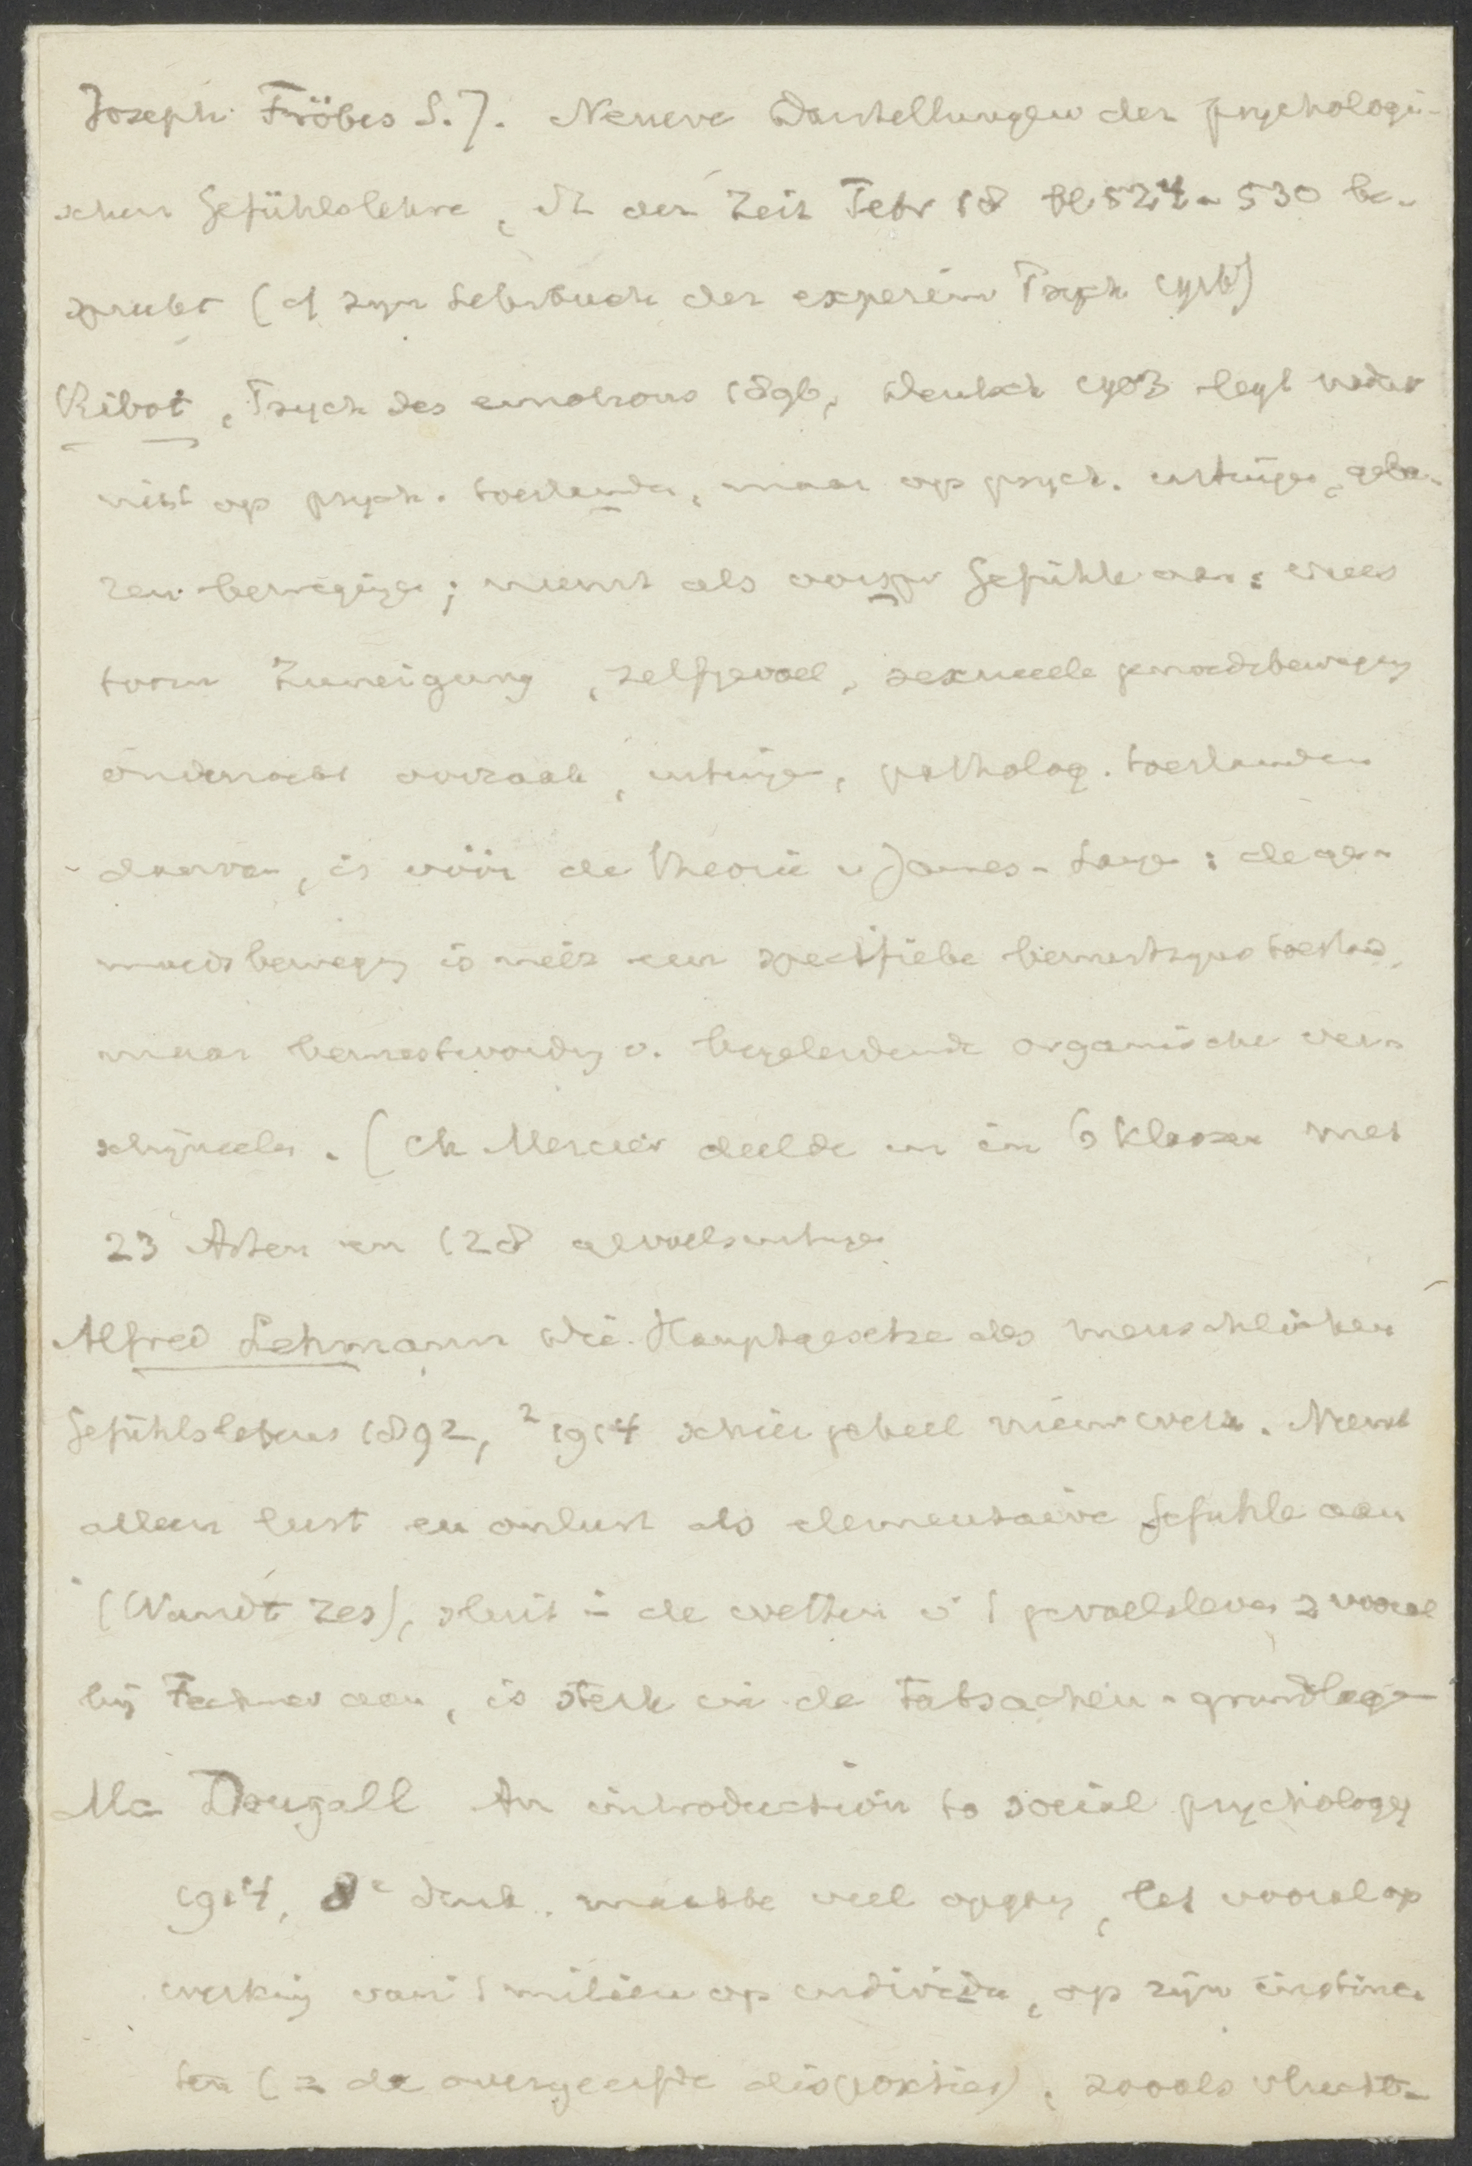 Joseph Fröbes S.J. Neuere Darstellungen der psychologi-
schen Gefühlslehre, St der Zeit Febr 18 bl 524-530 be-
spreekt (cf zijn Lehrbuch der experim Psych 1916)
Ribot, Psych des emotions 1896, deutsch 1903 legt nadr
niet op psych. toestanden, maar op psych. uitingen, geba-
ren bewegingen; neemt als oorspr Gefühle aan: vrees
toorn Zuneigung, zelfgevoel, sexueele gemoedsbeweging
onderzoekt oorzaak, uitingen, patholog. toestanden
daarvan, is vóór de theorie v James-Lange: de ge-
moedsbeweging is niet een specifieke bewustzijnstoestand,
maar bewustwording v. begeleidende organische ver-
schijnselen. (Ch Mercier deelde in in 6 klassen met
23 Arten en 128 gevoelsuitingen
Alfred Lehmann Die Hauptgesetze des menschlichen
Gefühlslebens 1892, ² 1914 schier geheel nieuw werk. Neemt
alleen lust en onlust als elementaire Gefühle aan
(Wundt zes), sluit in de wetten v h gevoelsleven z vooral
bij Fechner aan, is sterk in de Tatsachen-grundlage
Mc Dougall An introduction to social psychology
1914, 8e druk. maakte veel opgang, let vooral op
werking van h milieu op individu, op zijn instinc-
ten (= de overgeerfde disposities), zooals vlucht-